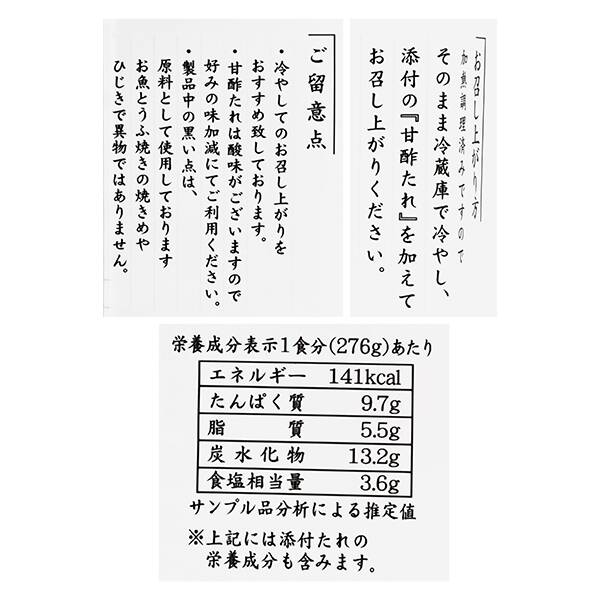 お召し上がり方
加熱調理済みですので
そのまま冷蔵庫で冷やし、
添付の『甘酢たれ』を加えて
お召し上がりください。
ご留意点
・冷やしてのお召し上がりを
おすすめ致しております。
・甘酢たれは酸味がございますので
好みの味加減にてご利用ください。
・製品中の黒い点は、
原料として使用しております
お魚とうふ焼きの焼きめや
ひじきで異物ではありません。
栄養成分表示1食分(276g)あたり
エネルギー 141kcal
たんぱく質 9.7g
脂質 5.5g
炭水化物 13.2g
食塩相当量 3.6g
サンプル品分析による推定値
※上記には添付たれの
栄養成分も含みます。